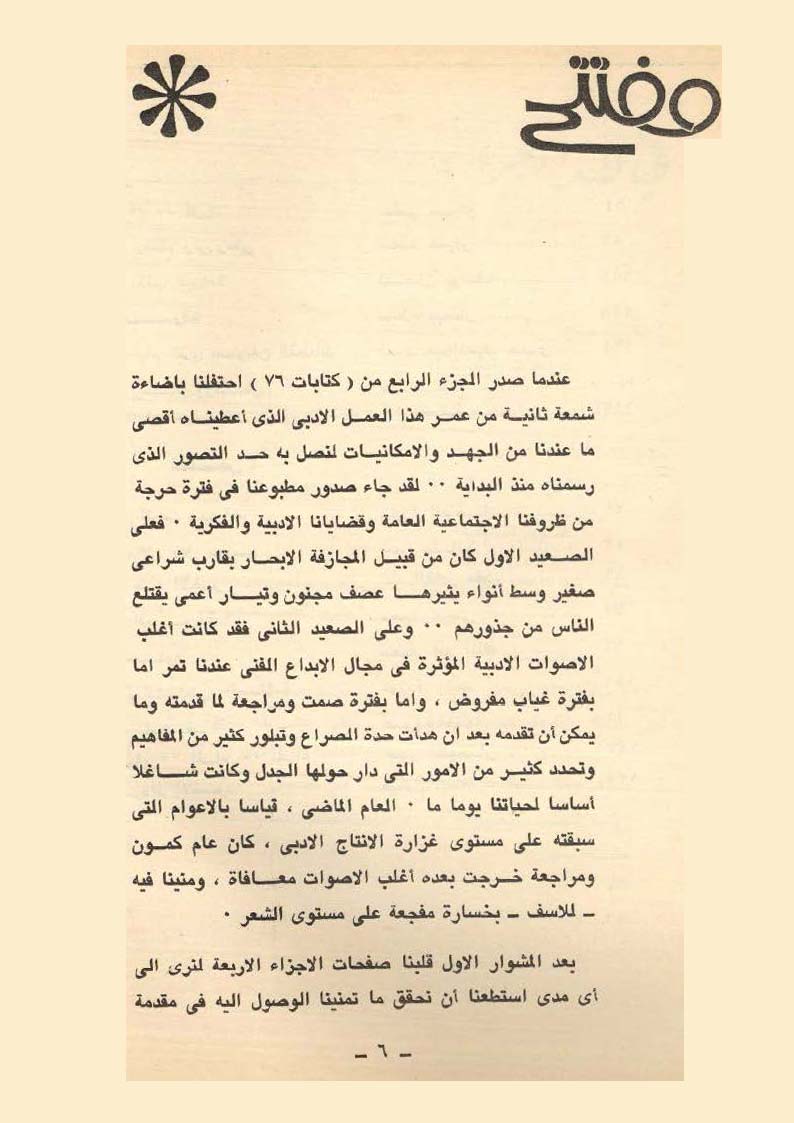 مفتتح
عندما صدر الجزء الرابع من ( كتابات ٧٦ ) احتفلنا باضاءة
شمعة ثانيـة من عمـر هذا العمـل الادبى الذى أعطينـاه أقصى
ما عندنا من الجهـد والامكانيـات لنصل به حـد التصور الذى
رسمناه منذ البداية ٠٠ لقد جاء صدور مطبوعنا فى فترة حرجة
من ظروفنا الاجتماعية العامة وقضايانا الادبية والفكرية ٠ فعلى
الصـعيد الاول كان من قبيـل المجازفة الابحـار بقارب شراعى
صغير وسط أنواء يثيرهـا عصف مجنون وتيـار أعمى يقتلع
الناس من جذورهم ٠٠ وعلى الصعيد الثانى فقد كانت أغلب
الاصوات الادبية المؤثرة فى مجال الابداع الفنى عندنا تمر اما
بفترة غياب مفروض ، واما بفترة صمت ومراجعة لما قدمته وما
يمكن أن تقدمه بعد ان هدأت حدة الصراع وتبلور كثير من المفاهيم
وتحدد كثيـر من الامور التى دار حولها الجدل وكانت شـاغلا
أساسا لحياتنا يوما ما ٠ العام الماضى ، قياسا بالاعوام التى
سبقته على مستوى غزارة الانتاج الادبى ، كان عام كمـون
ومراجعة خـرجت بعده أغلب الاصوات معـافاة ، ومنينا فيه
ـ للاسف ـ بخسارة مفجعة على مستوى الشعر ٠
بعد المشوار الاول قلبنا صفحات الاجزاء الاربعة لنرى الى
أى مدى استطعنا أن نحقق ما تمنينا الوصول اليه فى مقدمة
ـ ٦ ـ